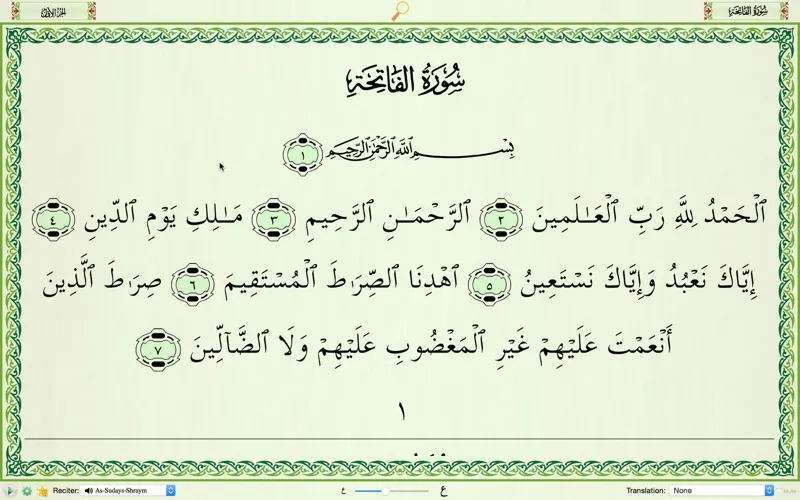 الجزء الأول
سُورَةُ الفَاتِحَةِ
سُورَةُ الفَاتِحَةِ
بِسْمِ ٱللَّهِ ٱلرَّحْمَٰنِ ٱلرَّحِيمِ ١
ٱلْحَمْدُ لِلَّهِ رَبِّ ٱلْعَـٰلَمِينَ ٢ ٱلرَّحْمَـٰنِ ٱلرَّحِيمِ ٣ مَـٰلِكِ يَوْمِ ٱلدِّينِ ٤
إِيَّاكَ نَعْبُدُ وَإِيَّاكَ نَسْتَعِينُ ٥ ٱهْدِنَا ٱلصِّرَٰطَ ٱلْمُسْتَقِيمَ ٦ صِرَٰطَ ٱلَّذِينَ
أَنْعَمْتَ عَلَيْهِمْ غَيْرِ ٱلْمَغْضُوبِ عَلَيْهِمْ وَلَا ٱلضَّآلِّينَ ٧
١
Reciter: As-Sudays-Shraym ع ع Translation: None